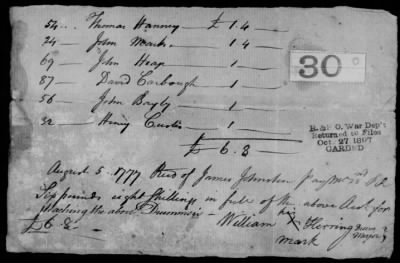 54 — Thomas Hanney — £ 1.4 —
74 — John Mark — 1 4 —
69 — John Heap — 1 —
87 — David Carbough — 1 —
56 — John Bagly — 1 —
32 — Henry Curtis — 1 —
£ 6.8 —
30
R. & P. O. War Dep't
Returned to Files
Oct. 27 1897
CARDED
August 5 1777 Recd of James Johnston Paymr 2d
Six pounds eight Shillings in full of the above Acct for
teaching the above Drummers —
William his Herring Drum
£ 6 8 — mark Major